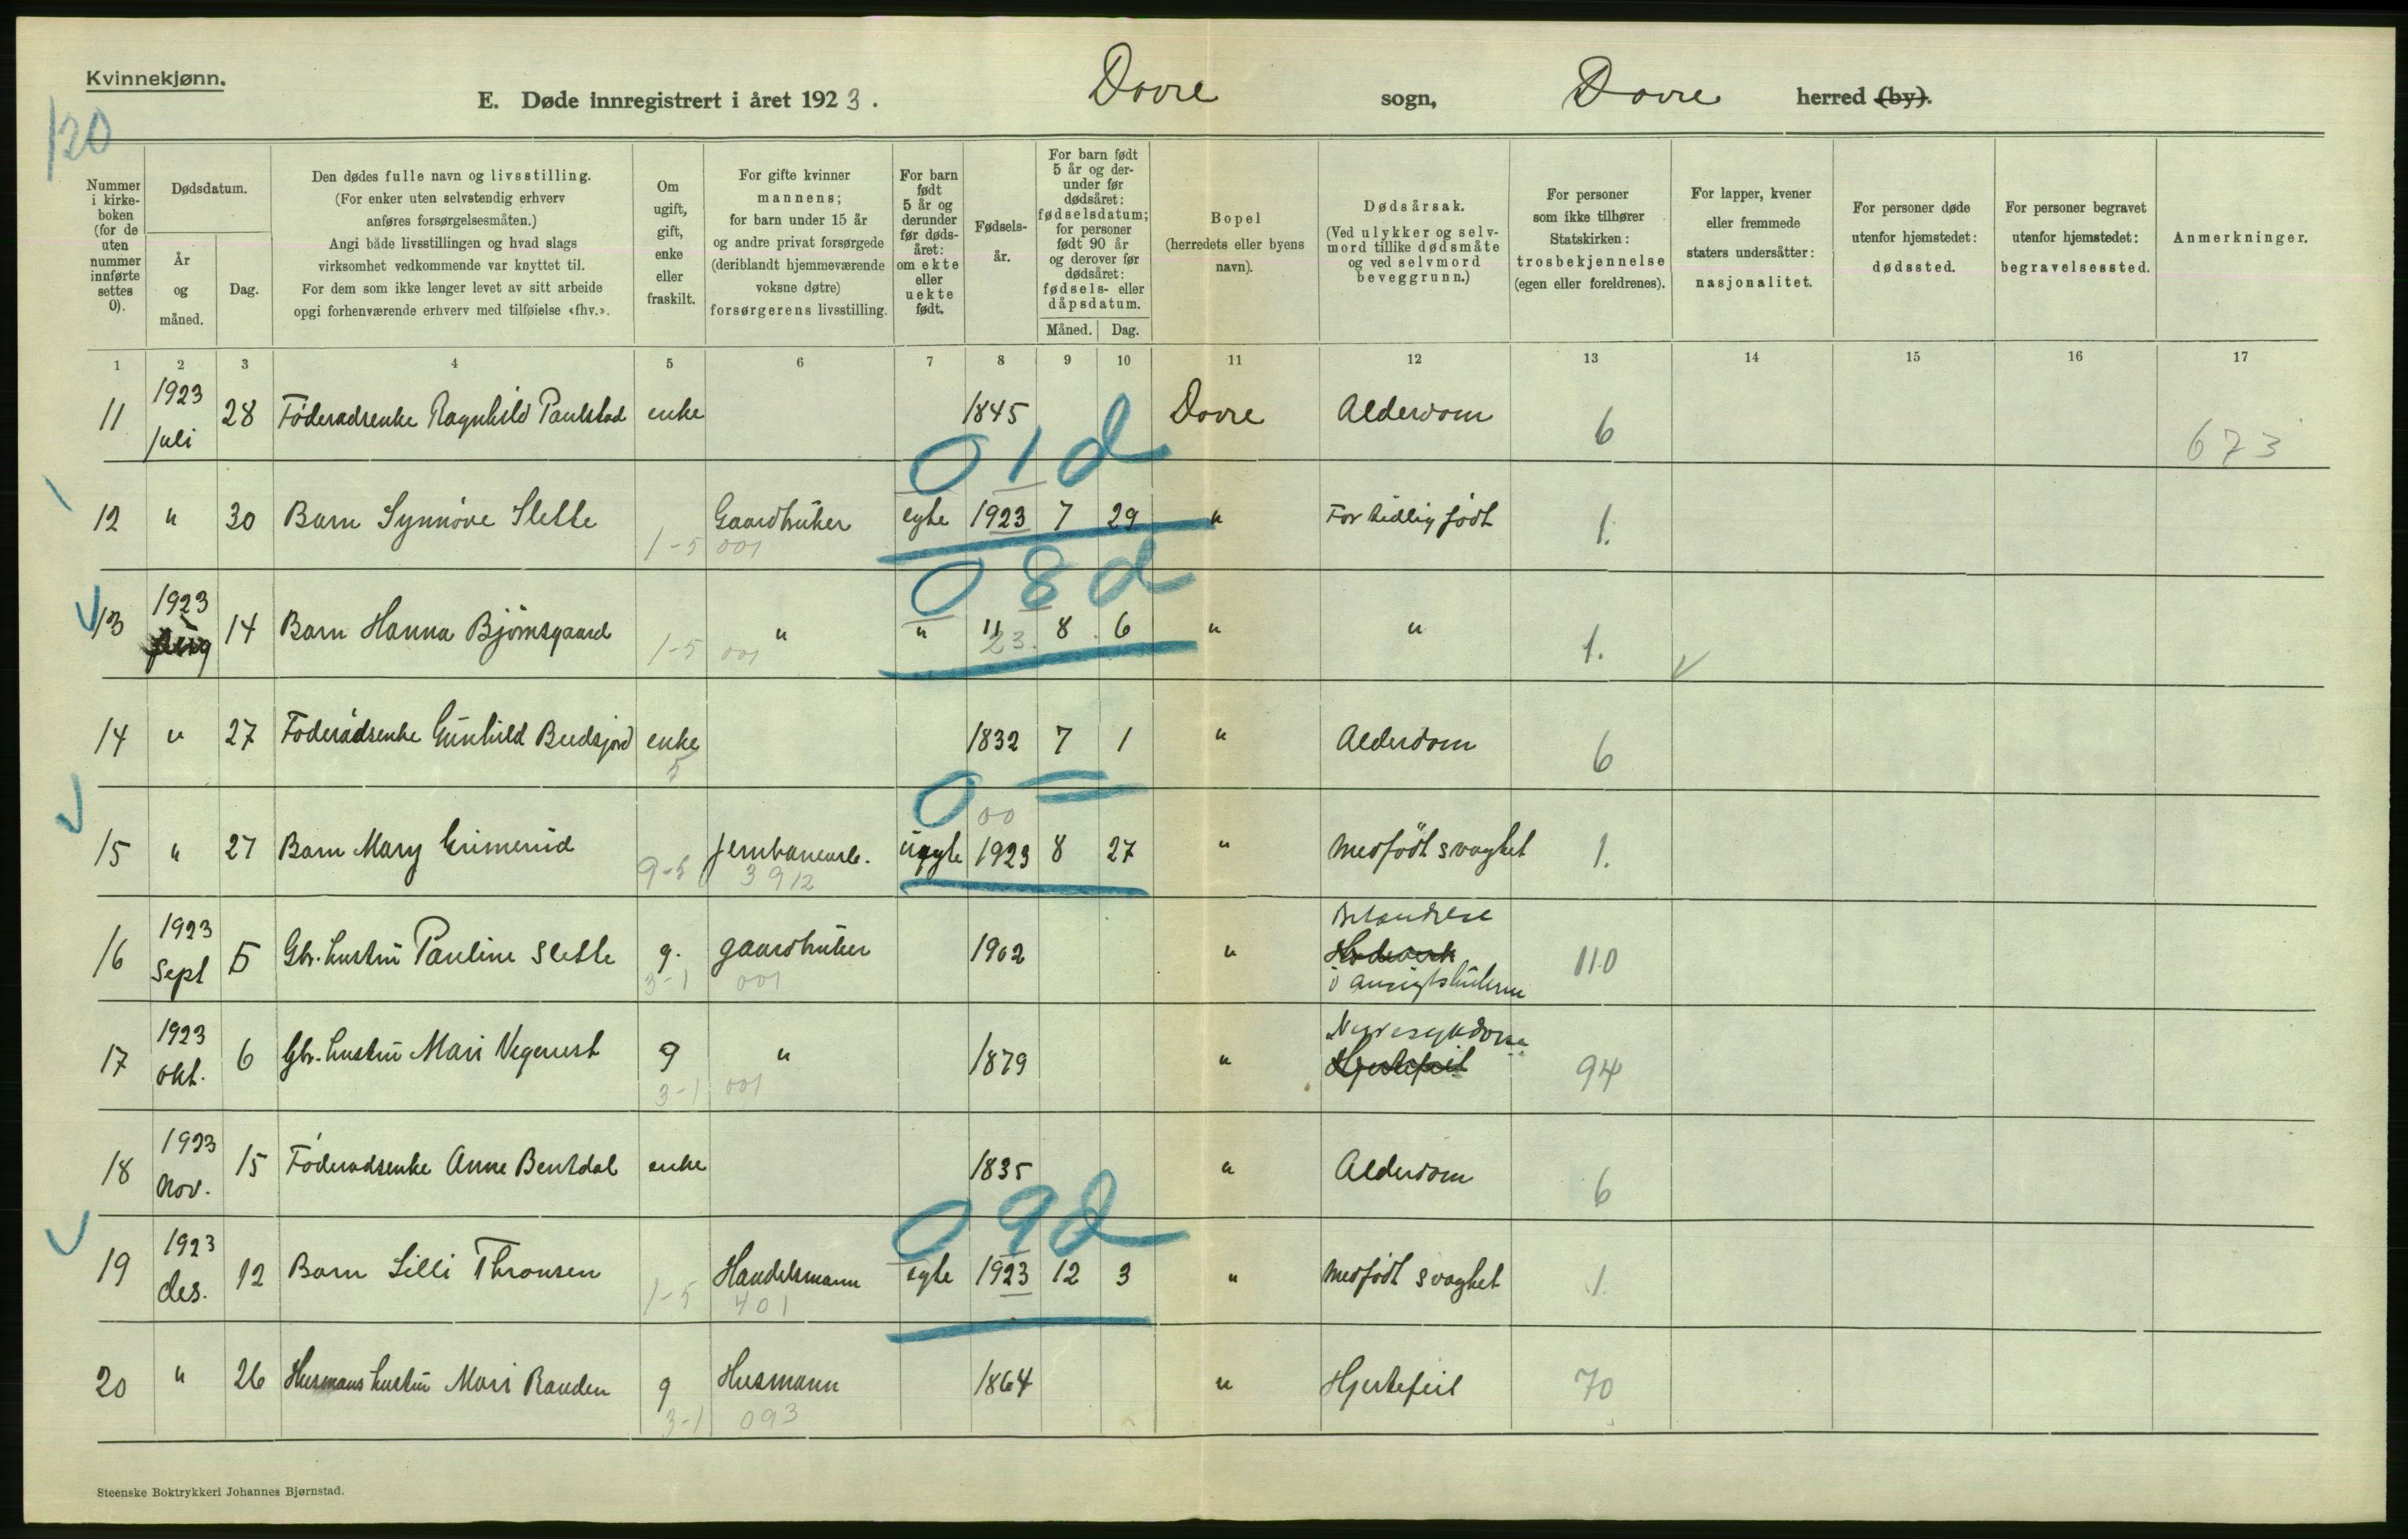 Kvinnekjønn.
E. Døde innregistrert i året 1923.
Dovre sogn, Dovre herred (by).
120
Nummer i kirkeboken (for de uten nummer innførte settes 0).
Dødsdatum.
År og måned.
Dag.
Den dødes fulle navn og livsstilling.
(For enker uten selvstendig erhverv
anføres forsørgelsesmåten.)
Angi både livsstillingen og hvad slags
virksomhet vedkommende var knyttet til.
For dem som ikke lenger levet av sitt arbeide
opgi forhenværende erhverv med tilføielse «fhv.».
Om ugift, gift, enke eller fraskilt.
For gifte kvinner
mannens;
for barn under 15 år
og andre privat forsørgede
(deriblandt hjemmeværende
voksne døtre)
forsørgerens livsstilling.
For barn født 5 år og derunder før dødsåret: om ekte eller uekte født.
Fødselsår.
For barn født 5 år og derunder før dødsåret: fødselsdatum; for personer født 90 år og derover før dødsåret: fødsels- eller dåpsdatum.
Måned. Dag.
Bopel
(herredets eller byens
navn).
Dødsårsak.
(Ved ulykker og selvmord tillike dødsmåte
og ved selvmord
beveggrunn.)
For personer
som ikke tilhører
Statskirken:
trosbekjennelse
(egen eller foreldrenes).
For lapper, kvener
eller fremmede
staters undersåtter:
nasjonalitet.
For personer døde
utenfor hjemstedet:
dødssted.
For personer begravet
utenfor hjemstedet:
begravelsessted.
Anmerkninger.
1 2 3 4 5 6 7 8 9 10 11 12 13 14 15 16 17
11 1923 juli 28 Føderadsenke Ragnhild Paulstad enke 1845 Dovre Alderdom 6 673
0 1 d
12 " 30 Barn Synnøve Slette 1-5 Gaardbruker 001 egte 1923 7 29 " For tidlig født 1.
0 8 d
13 1923 14 Barn Hanna Bjørnsgaard 1-5 " 001 " " 23. 8 6 " " 1.
14 " 27 Føderådsenke Gunhild Budsjord enke 5 1832 7 1 " Alderdom 6
0 00
15 " 27 Barn Mary Grimerud 9-5 Jernbanearb. 3912 uegte 1923 8 27 " Medfødt svaghet 1.
16 1923 Sept 5 Gbr. hustru Pauline Slette g. 3-1 gaardbruker 001 1902 " Betændelse Hodeverk i ansigtshulerne 110
17 1923 okt. 6 Gbr. hustru Mari Vegerust g 3-1 " 001 1879 " Nyresykdom Hjertefeil 94
18 1923 Nov. 15 Føderadsenke Anne Bentdal enke 1835 " Alderdom 6
0 9 d
19 1923 des. 12 Barn Lilli Thronsen 1-5 Handelsmann 401 egte 1923 12 3 " Medfødt svaghet 1.
20 " 26 Husmans hustru Mari Randen g 3-1 Husmann 093 1864 " Hjertefeil 70
Steenske Boktrykkeri Johannes Bjørnstad.